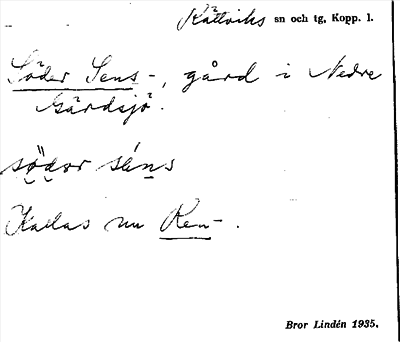 Rättviks sn och tg, Kopp. l.
Söder Sens -, gård i Nedre
Gärdsjö.
södor séns
Kallas nu Ren - .
Bror Lindén 1935.